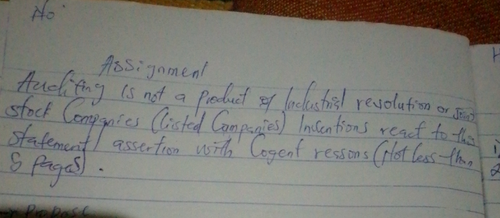 No
Assignment
Auditing is not a product of Industrial revolution or Joint
stock Companies (listed Companies) Inventions react to this
statement/assertion with Cogent ressons (Not less than
8 pages).